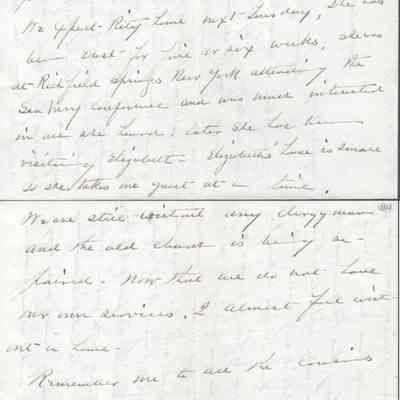 We expect Kitty home next Tuesday, she has
been east for five or six weeks, she was
at Richfield Springs New York attending the
Conference and was much interested
in all she heard. later she has been
visiting Elizabeth - Elizabeth's house is small
so she takes one guest at a time.
We are still without any clergyman
and the old church is being re-
paired. Now that we do not have
our own services, I almost feel with-
out a home.
Remember me to all the cousins